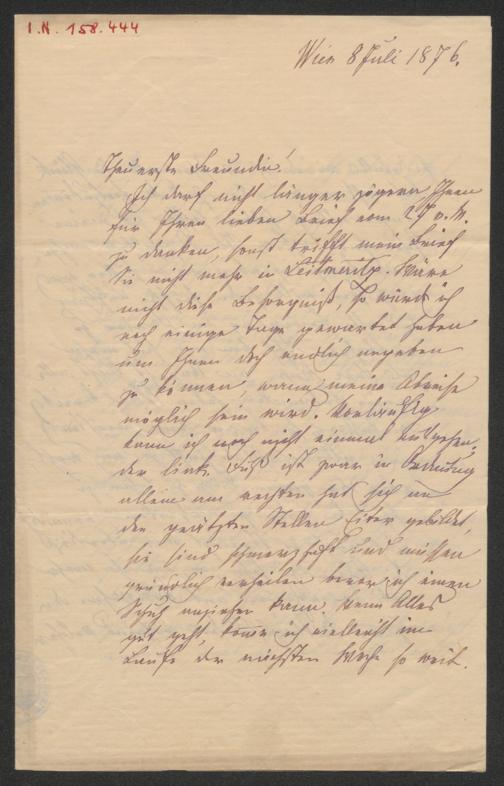 I.N. 158.444
Wien 8 Juli 1876.
Theuerste Freundin!
Ich darf nicht länger zögern Ihnen
für Ihren lieben Brief vom 27 v. M.
zu danken, sonst trifft mein Brief
Sie nicht mehr in Leitmeritz. Wäre
nicht diese Besorgniß, so würde ich
noch einige Tage gewartet haben
um Ihnen doch endlich angeben
zu können, wann meine Abreise
möglich sein wird. Vorläufig
kann ich noch nicht einmal ausgehen,
der linke Fuß ist zwar in Ordnung
allein am rechten hat sich an
den geätzten Stellen Eiter gebildet,
sie sind schmerzhaft und müssen
gründlich verheilen bevor ich einen
Schuh anziehen kann. Wenn Alles
gut geht, komme ich vielleicht im
Laufe der nächsten Woche so weit.